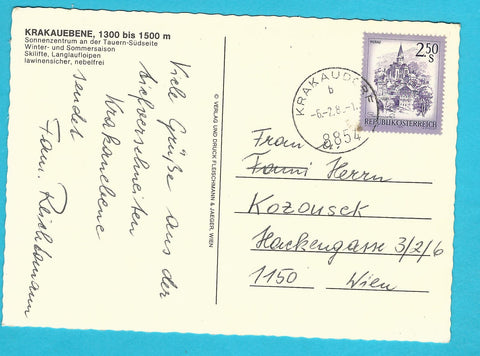 KRAKAUEBENE, 1300 bis 1500 m
Sonnenzentrum an der Tauern-Südseite
Winter- und Sommersaison
Skilifte, Langlaufloipen
lawinensicher, nebelfrei
Viele Grüße aus der
tiefverschneiten
Krakauebene
sendet
Fam. Reichtomann
© VERLAG UND DRUCK FLEISCHMANN & JAEGER, WIEN
KRAKAUDORF
b
-6.-2.8
8854
MURAU
2.50
S
REPUBLIK ÖSTERREICH
Frau u.
Herrn
Kozousek
Hackengasse 3/2/6
1150 Wien